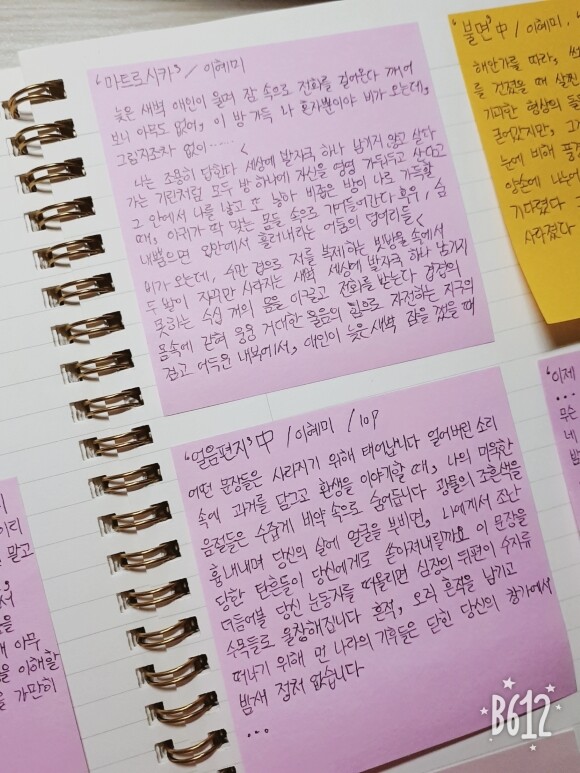 '마트로시카' / 이혜미
늦은 새벽 애인이 울며 잠 속으로 전화를 걸어온다 깨어
보니 아무도 없어, 이 방 가득 나 혼자뿐이야 비가 오는데,
그림자조차 없이…… <
나는 조용히 답한다 세상에 발자국 하나 남기지 않고 살다
가는 기린처럼 모두 밤 하나에 자신을 영영 가둬두고 산다고
그 안에서 나를 낳고 또 낳아 비좁은 밤이 나로 가득할
때, 아귀가 딱 맞는 몸들 속으로 걸어들어간다 흑우, 숨
내뱉으면 입안에서 흘러내리는 어둠의 덩어리들<
비가 오는데, 수만 겹으로 저를 복제하는 빗방울 속에서
두 발이 자꾸만 사라지는 새벽 세상에 발자국 하나 남기지
못하는 수십 개의 몸을 이끌고 전화를 받는다 겹겹의
몸속에 갇혀 웅웅 거대한 울음의 힘으로 자전하는 지구의
검고 어두운 내부에서, 애인이 늦은 새벽 잠을 깼을 때
'얼음편지' 中 / 이혜미 / 10P
어떤 문장들은 사라지기 위해 태어납니다 얼어버린 소리
속에 과거를 담그고 환생을 이야기할 때, 나의 미욱한
음절들은 수줍게 비약 속으로 숨어듭니다 광물의 조흔색을
흉내내며 당신의 살에 얼굴을 부비면, 나에게서 조난
당한 탄흔들이 당신에게도 쏟아져내릴까요 이 문장을
더듬어볼 당신 눈동자를 떠올리면 심장의 뒤편이 수지류
수목들로 울창해집니다 흔적, 오직 흔적을 남기고
떠나기 위해 먼 나라의 기후들은 닫힌 당신의 창가에서
밤새 정처 없습니다
...
'불면' 中 / 이혜미,
해안가를 따라,
를 건졌을 때 살짝
기괴한 형상의
눈에 비해
양손에 나누어
기다렸다
사라졌다
'이제
...
무슨
네
말고
을
내 아무
을 이해할
을 가만히
B612